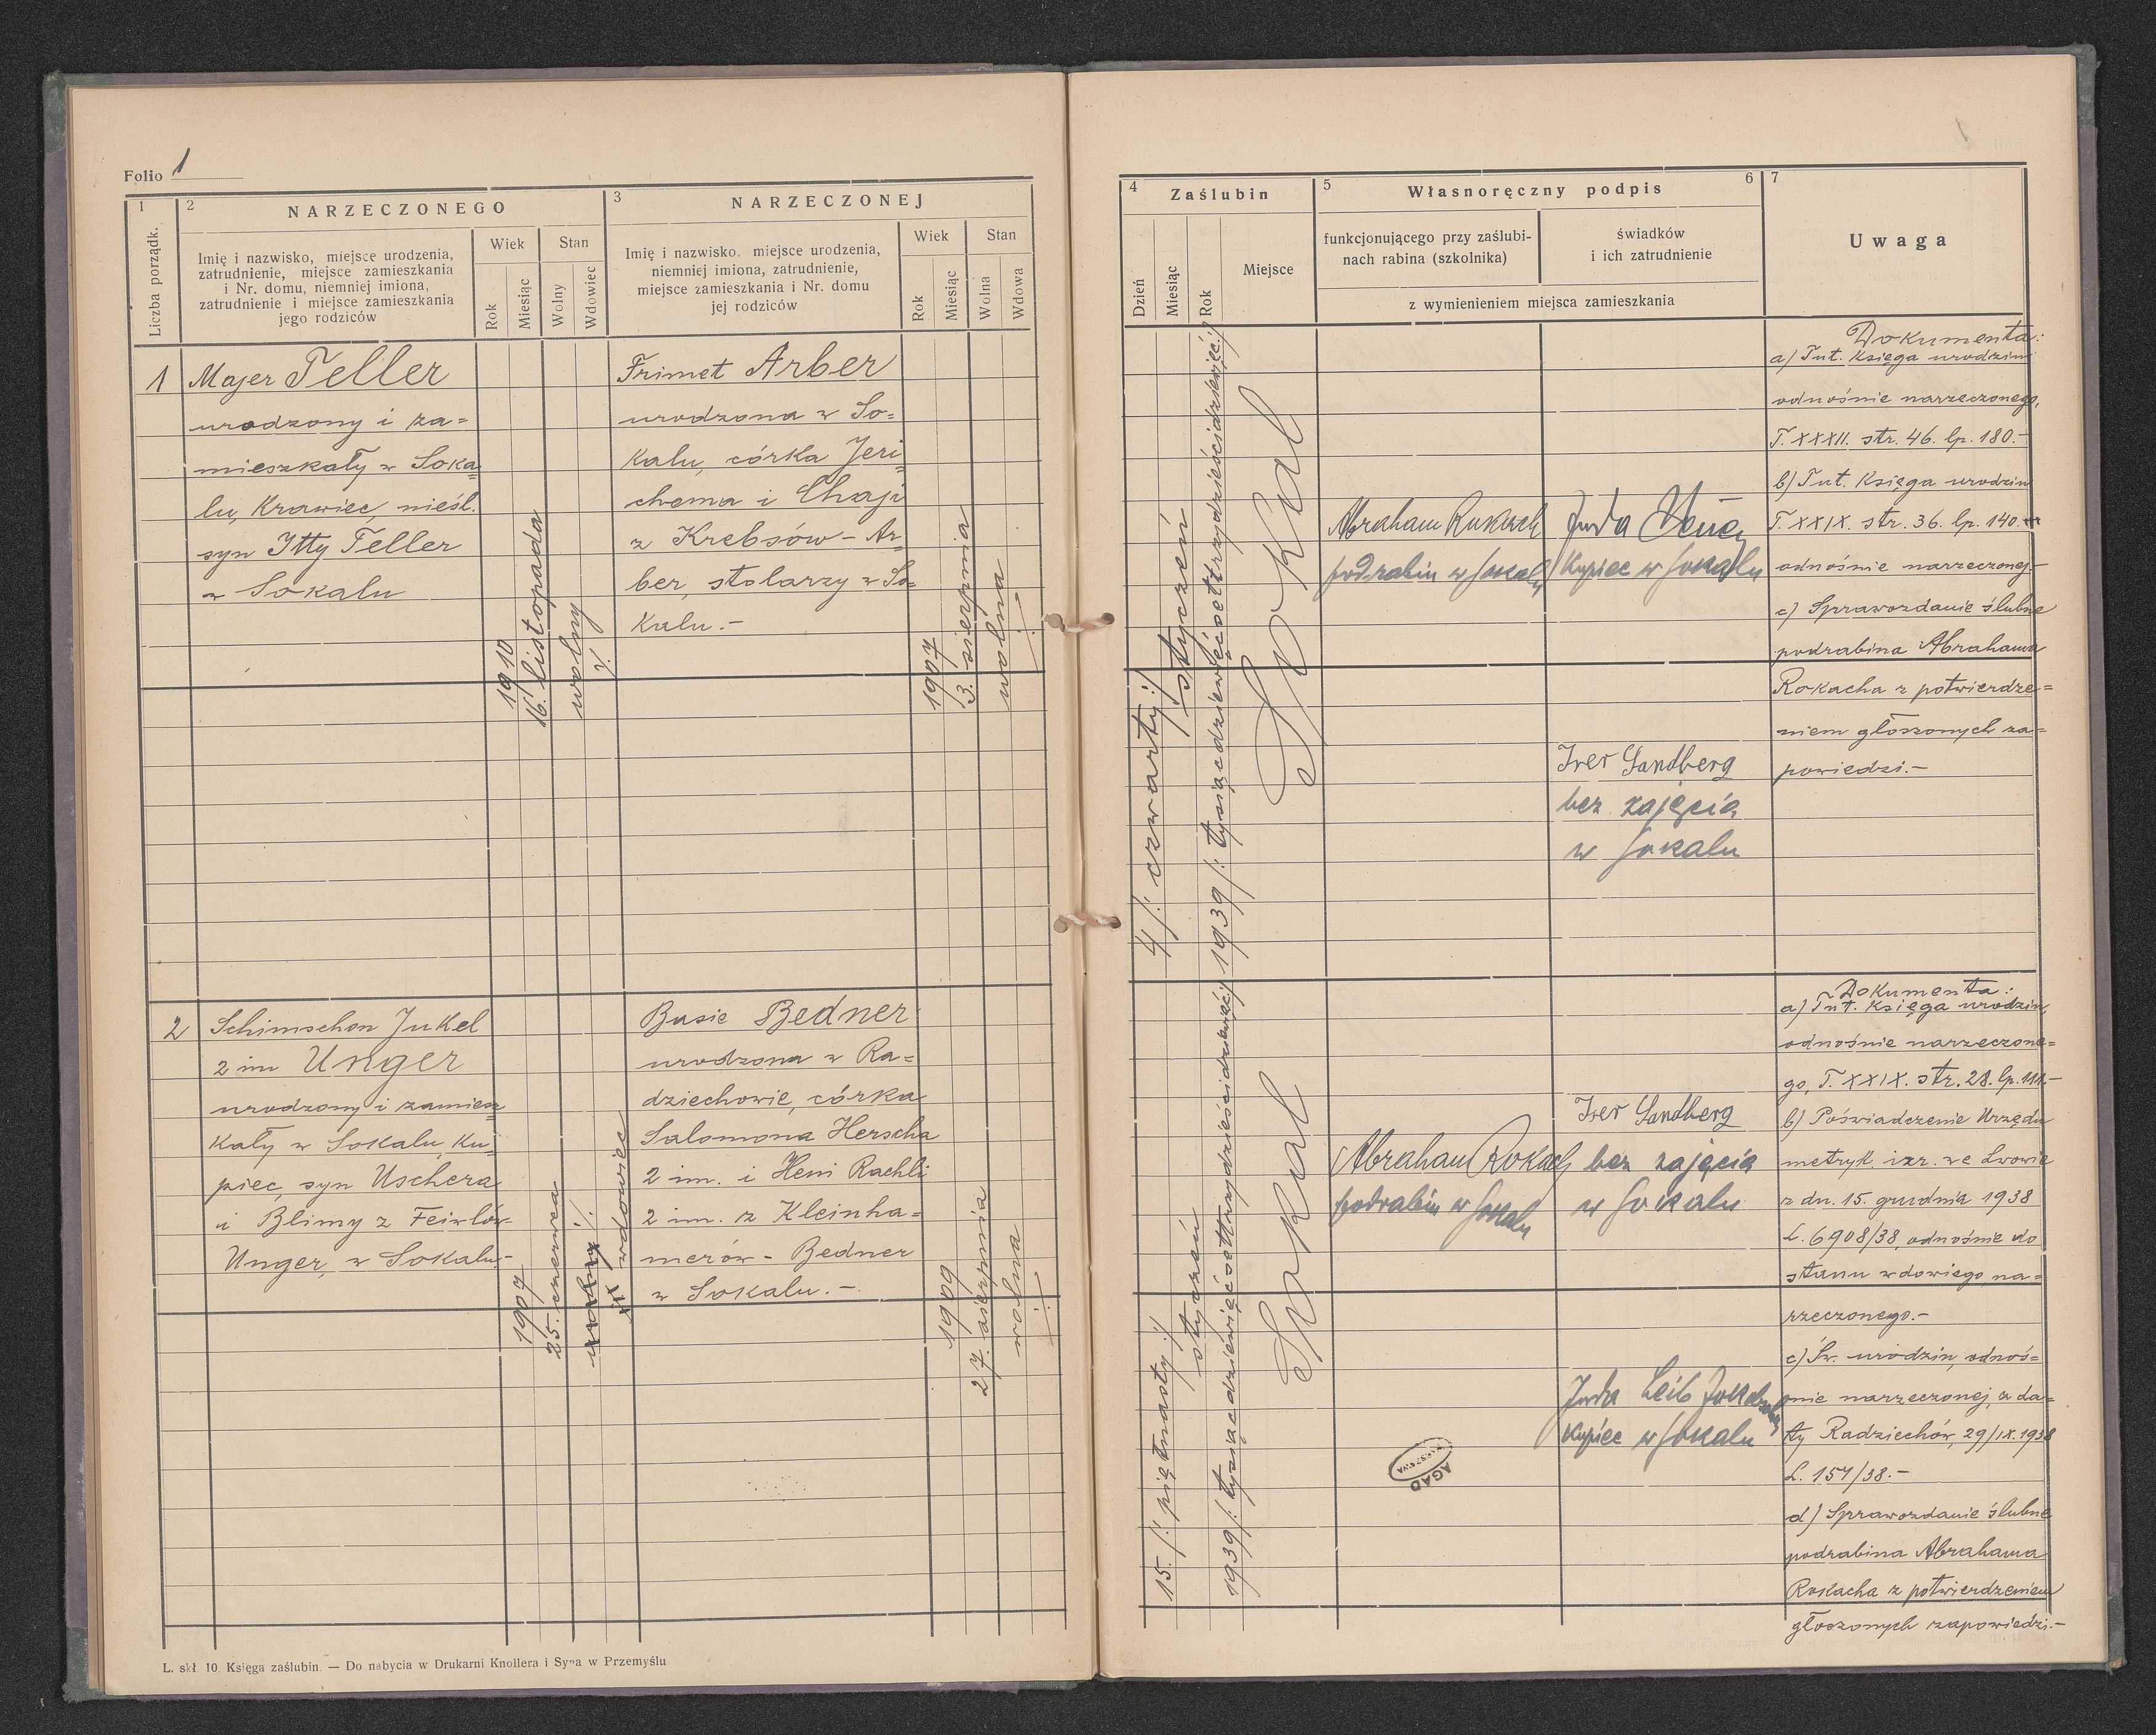 Folio 1
1
2
NARZECZONEGO
3
NARZECZONEJ
Liczba porządk.
Imię i nazwisko, miejsce urodzenia,
zatrudnienie, miejsce zamieszkania
i Nr. domu, niemniej imiona,
zatrudnienie i miejsce zamieszkania
jego rodziców
Wiek
Stan
Rok
Miesiąc
Wolny
Wdowiec
Imię i nazwisko, miejsce urodzenia,
niemniej imiona, zatrudnienie,
miejsce zamieszkania i Nr. domu
jej rodziców
Wiek
Stan
Rok
Miesiąc
Wolna
Wdowa
1
Majer Teller
urodzony i za=
mieszkały w Soka=
lu, Krawiec, nieśl.
syn Itty Teller
w Sokalu
1910
16. listopada
wolny
Frimet Arber
urodzona w So=
kalu, córka Jeri=
chema i Chaji
z Krebsów - Ar=
ber, stolarzy w So=
kalu.-
1907
13. sierpnia
wolna
2
Schimschon Jukel
2 im Unger
urodzony i zamiesz=
kały w Sokalu, Ku=
piec, syn Uschera
i Blimy z Feiwlów-
Unger, w Sokalu-
1907
25. czerwca
wolny
wdowiec
Basie Bedner
urodzona w Ra=
dziechowie, córka
Salomona Herscha
2 im. i Heni Rachli
2 im. z Kleinha=
merów - Bedner
w Sokalu.-
1909
27. sierpnia
wolna
L. skł. 10. Księga zaślubin. — Do nabycia w Drukarni Knollera i Syna w Przemyślu
4
Zaślubin
5
Własnoręczny podpis
6
7
Dzień
Miesiąc
Rok
Miejsce
funkcjonującego przy zaślubi-
nach rabina (szkolnika)
świadków
i ich zatrudnienie
z wymienieniem miejsca zamieszkania
Uwaga
4 /: czwarty :/
styczeń
1939 /: tysiącdziewięćsettrzydzieścidziewięć :/
Sokal
Abraham Rokach
podrabin w Sokalu
Juda
Kupiec w Sokalu
Iser Sandberg
bez zajęcia
w Sokalu
Dokumenta:
a) Tut. Księga urodzin
odnośnie narzeczonego,
T. XXXII. str. 46. lp. 180.-
b) Tut. Księga urodzin
T. XXIX. str. 36. lp. 140.-
odnośnie narzeczonej-
c) Sprawozdanie ślubne
podrabina Abrahama
Rokacha z potwierdze=
niem głoszonych za=
powiedzi.-
15. /: piętnasty :/
styczeń
1939 /: tysiącdziewięćsettrzydzieścidziewięć :/
Sokal
Abraham Rokach
podrabin w Sokalu
Iser Sandberg
bez zajęcia
w Sokalu
Juda Leib
Kupiec w Sokalu
AGAD
WARSZAWA
Dokumenta:
a) Tut. Księga urodzin,
odnośnie narzeczone=
go, T. XXIX. str. 28. lp. 111.-
b) Poświadczenie Urzędu
metryk. izr. we Lwowie
z dn. 15. grudnia 1938
L. 6908/38, odnośnie do
stanu wdowiego na=
rzeczonego.-
c) Św. urodzin, odnoś=
nie narzeczonej, z da=
ty Radziechów, 29/IX.1938
L. 157/38.-
d) Sprawozdanie ślubne
podrabina Abrahama
Rokacha z potwierdzeniem
głoszonych zapowiedzi.-